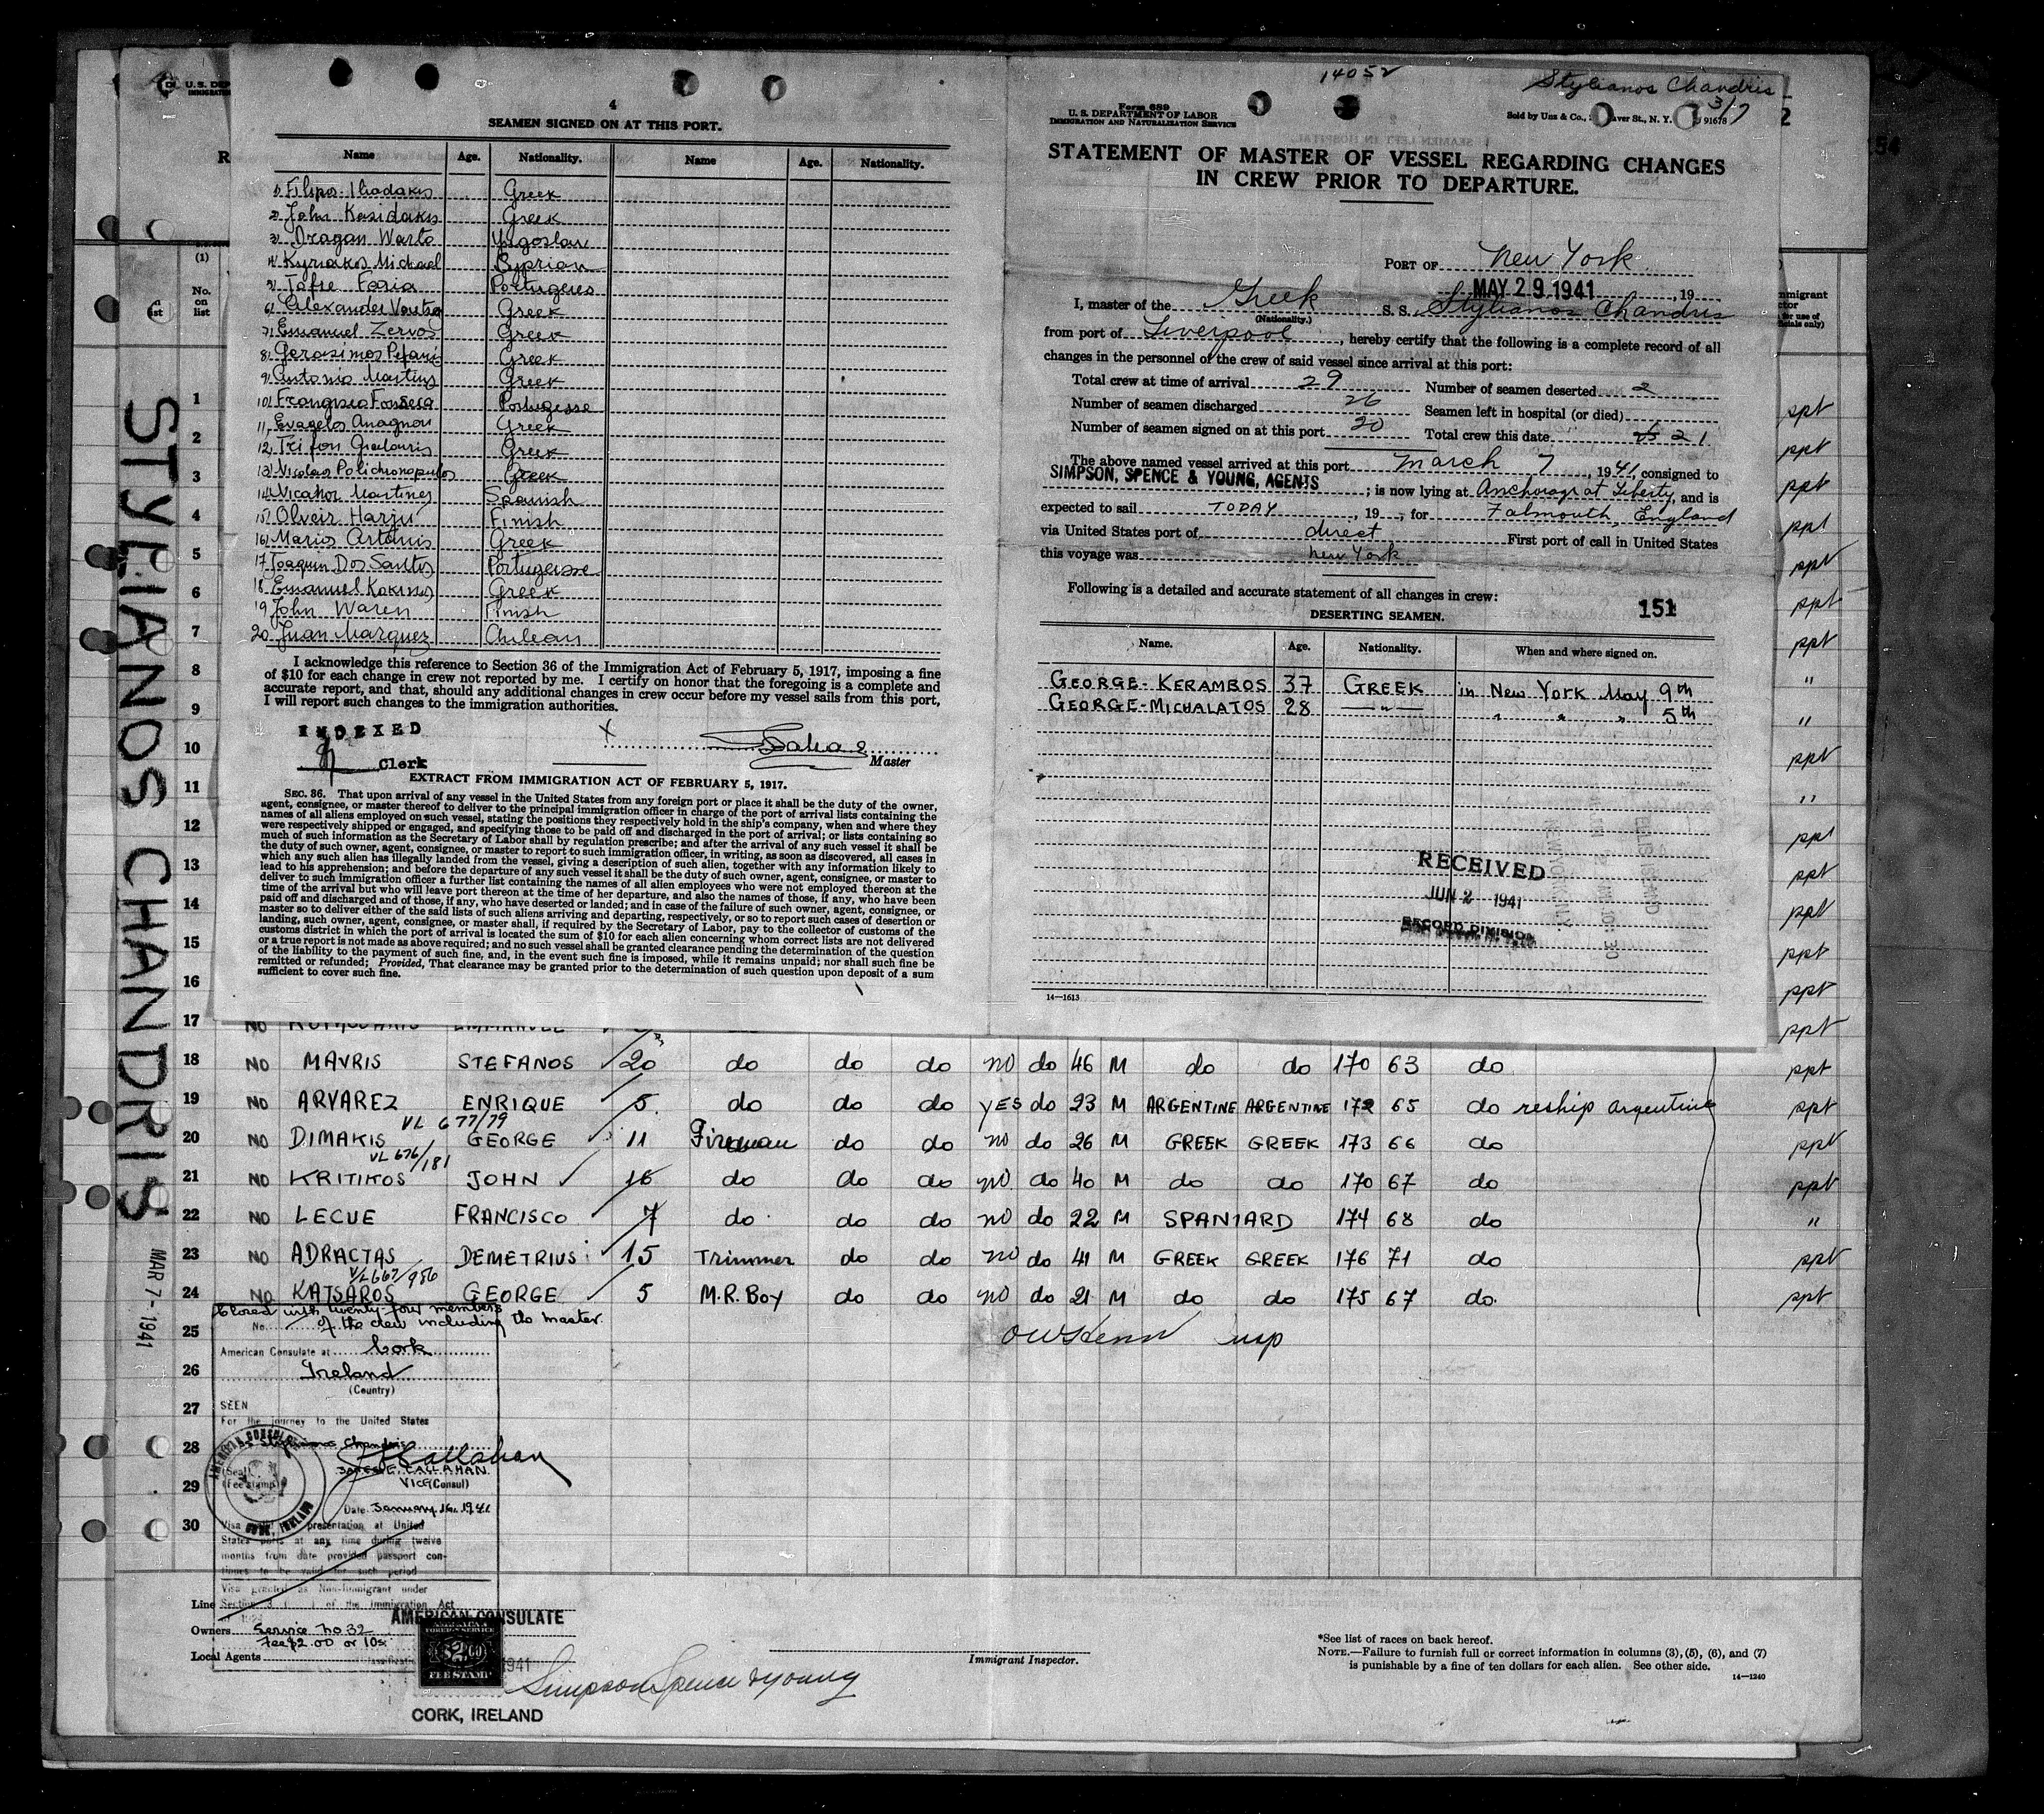 4
SEAMEN SIGNED ON AT THIS PORT.
Name Age. Nationality. Name Age. Nationality.
1) Filipos Iliadakis Greek
2) John Kasidakis Greek
3) Dragan Warto Yugoslav
4) Kyriakos Michael Syprian
Faria Portugeres
6) Alexander Greek
7) Emanuel Zervos Greek
8) Gerasimos Pefani Greek
9) Antonio Martins Greek
10) Fransisco Fonseca Portugesse
11, Evagelos Anagnou Greek
12, Trifon Greek
13) Nicolas Polichronopulos Greek
14) Nicanor Martines Spanish
15) Olveir Harju Finish
16) Marios Artemis Greek
17 Joaquim Dos Santos Portugesse
18 Emanuel Kokinos Greek
19 John Waren Finish
20 Juan Marquez Chilean
I acknowledge this reference to Section 36 of the Immigration Act of February 5, 1917, imposing a fine
of $10 for each change in crew not reported by me. I certify on honor that the foregoing is a complete and
accurate report, and that, should any additional changes in crew occur before my vessel sails from this port,
I will report such changes to the immigration authorities.
INDEXED
Clerk
X
Master
EXTRACT FROM IMMIGRATION ACT OF FEBRUARY 5, 1917.
SEC. 36. That upon arrival of any vessel in the United States from any foreign port or place it shall be the duty of the owner,
agent, consignee, or master thereof to deliver to the principal immigration officer in charge of the port of arrival lists containing the
names of all aliens employed on such vessel, stating the positions they respectively hold in the ship's company, when and where they
were respectively shipped or engaged, and specifying those to be paid off and discharged in the port of arrival; or lists containing so
much of such information as the Secretary of Labor shall by regulation prescribe; and after the arrival of any such vessel it shall be
the duty of such owner, agent, consignee, or master to report to such immigration officer, in writing, as soon as discovered, all cases in
which any such alien has illegally landed from the vessel, giving a description of such alien, together with any information likely to
lead to his apprehension; and before the departure of any such vessel it shall be the duty of such owner, agent, consignee, or master to
deliver to such immigration officer a further list containing the names of all alien employees who were not employed thereon at the
time of the arrival but who will leave port thereon at the time of her departure, and also the names of those, if any, who have been
paid off and discharged and of those, if any, who have deserted or landed; and in case of the failure of such owner, agent, consignee, or
master so to deliver either of the said lists of such aliens arriving and departing, respectively, or so to report such cases of desertion or
landing, such owner, agent, consignee, or master shall, if required by the Secretary of Labor, pay to the collector of customs of the
customs district in which the port of arrival is located the sum of $10 for each alien concerning whom correct lists are not delivered
or a true report is not made as above required; and no such vessel shall be granted clearance pending the determination of the question
of the liability to the payment of such fine, and, in the event such fine is imposed, while it remains unpaid; nor shall such fine be
remitted or refunded; Provided, That clearance may be granted prior to the determination of such question upon deposit of a sum
sufficient to cover such fine.
14052
Stylianos Chandris
3/7
Form 689
U. S. DEPARTMENT OF LABOR
IMMIGRATION AND NATURALIZATION SERVICE
Sold by Unz & Co., aver St., N. Y. 91678
STATEMENT OF MASTER OF VESSEL REGARDING CHANGES
IN CREW PRIOR TO DEPARTURE.
PORT OF New York
MAY 29 1941, 19
I, master of the Greek S. S. Stylianos Chandris
(Nationality.)
from port of Liverpool, hereby certify that the following is a complete record of all
changes in the personnel of the crew of said vessel since arrival at this port:
Total crew at time of arrival 29 Number of seamen deserted 2
Number of seamen discharged 26 Seamen left in hospital (or died)
Number of seamen signed on at this port 20 Total crew this date 21
The above named vessel arrived at this port March 7, 1941, consigned to
SIMPSON, SPENCE & YOUNG, AGENTS; is now lying at Anchorage at Liberty, and is
expected to sail TODAY, 19, for Falmouth, England
via United States port of direct First port of call in United States
this voyage was New York
Following is a detailed and accurate statement of all changes in crew:
151
DESERTING SEAMEN.
Name. Age. Nationality. When and where signed on.
GEORGE-KERAMBOS 37 GREEK in New York May 9th
GEORGE-MICHALATOS 28 " " " " 5th
RECEIVED
JUN 2 1941
RECORD DIVISION
14—1613
STYLIANOS CHANDRIS
MAR 7-1941
(1)
No.
on
list
1 ppt
2 ppt
3 ppt
4 ppt
5 ppt
6 ppt
7 ppt
8 "
9 "
10 ppt
11 "
12 ppt
13 ppt
14 ppt
15 ppt
16 ppt
17 NO ppt
18 NO MAVRIS STEFANOS 20 do do do no do 46 M do do 170 63 do ppt
19 NO ARVAREZ ENRIQUE 5 do do do yES do 23 M ARGENTINE ARGENTINE 172 65 do reship argentine ppt
VL 677/79
20 NO DIMAKIS GEORGE 11 Fireman do do no do 26 M GREEK GREEK 173 66 do ppt
VL 676/181
21 NO KRITIKOS JOHN 16 do do do no do 40 M do do 170 67 do ppt
22 NO LECUE FRANCISCO 7 do do do no do 22 M SPANIARD 174 68 do "
23 NO ADRACTAS DEMETRIUS 15 Trimmer do do no do 41 M GREEK GREEK 176 71 do ppt
V/L667/986
24 NO KATSAROS GEORGE 5 M.R. Boy do do no do 21 M do do 175 67 do. ppt
Closed with twenty four members
of the crew including the master.
No.
25
American Consulate at Cork
26
Ireland
(Country)
27
SEEN
For the journey to the United States
28
Stylianos Chandris
JAMES E. CALLAHAN
(Seal)
Vice (Consul)
(Fee stamp)
29
Date January 16, 1941
30
Visa presentation at United
States ports at any time during twelve
months from date provided passport con-
tinues to be valid for such period
Visa granted as Non-Immigrant under
Section 3 ( ) of the Immigration Act
Line
AMERICAN CONSULATE
Owners Service No 32
Fee $2.00 or 10s.
Local Agents
Simpson Spence & Young
$2.00
FEE STAMP
1941
CORK, IRELAND
Immigrant Inspector.
*See list of races on back hereof.
NOTE.—Failure to furnish full or correct information in columns (3), (5), (6), and (7)
is punishable by a fine of ten dollars for each alien. See other side.
14—1240